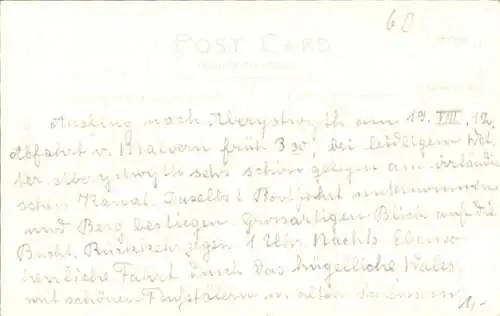 60
POST CARD
Ausflug nach Aberystwyth am 19. VIII. 12.
Abfahrt v. Malvern früh 3 30, bei leidligem Wet-
ter. Aberystwyth sehr schön gelegen am irländi-
schen Kanal. Daselbst Bootfahrt unternommen
und Berg bestiegen Grossartigen Blick auf die
Bucht. Rückkehr gegen 1 Uhr Nachts. Ebenso
herrliche Fahrt durch das hügelliche Wales
mit schönen Flußtälern u. alten
1,-